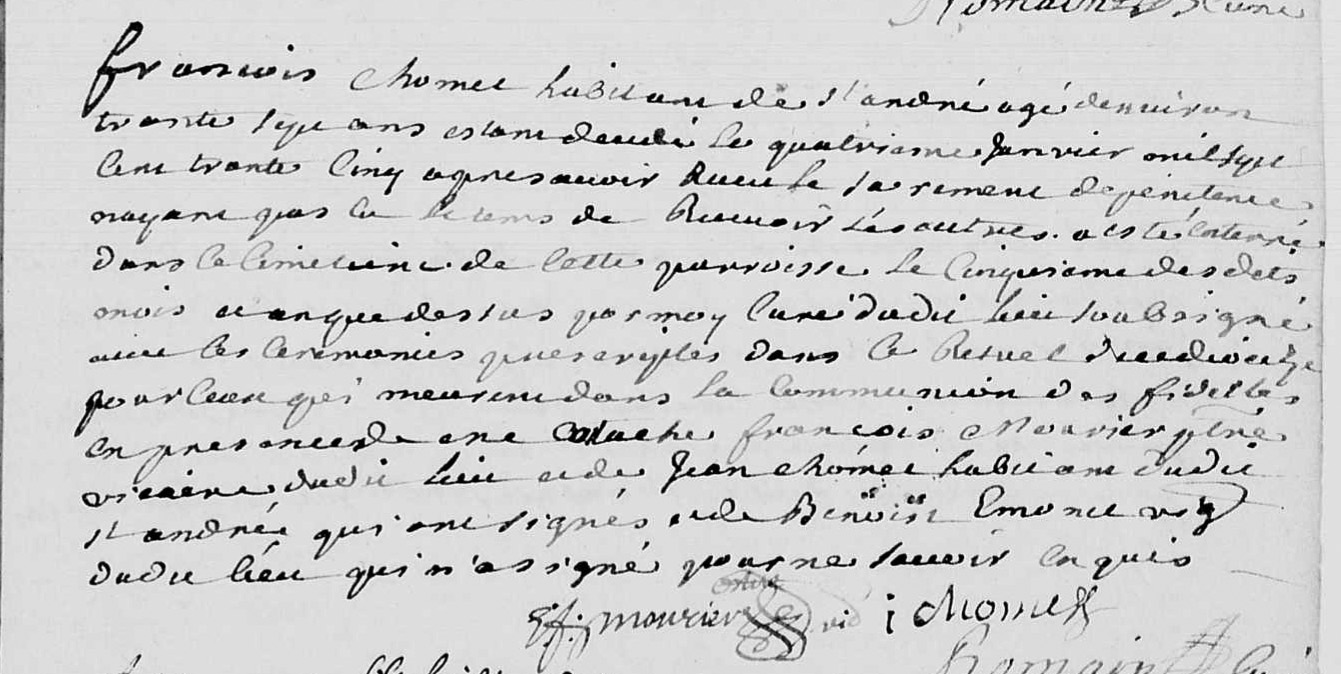 Romain Curé
françois Chomet habitant de st andré agé denviron
trante sept ans estant decedé le quatrieme Janvier mil sept
cent trante cinq apres avoir Receu le sacrement de penitence
nayant pas eu le tems de Recevoir les autres. a esté enterré
dans le cimetiere de cette parroisse le cinquieme des dets
mois et an que dessus par moy curé dudit lieu soubsigné
avec les ceremonies prescriptes dans le Rituel du dioceze
pour ceux qui meurent dans la communion des fidelles
en presence de françois Mourier ptre
vicaire dudit lieu et de Jean chomet habitant dudit
st andrée qui ont signés et de Benoist Emonet vig
dudit lieu qui n'a signé pour ne scavoir enquis
mourier vic i chomett
Romain